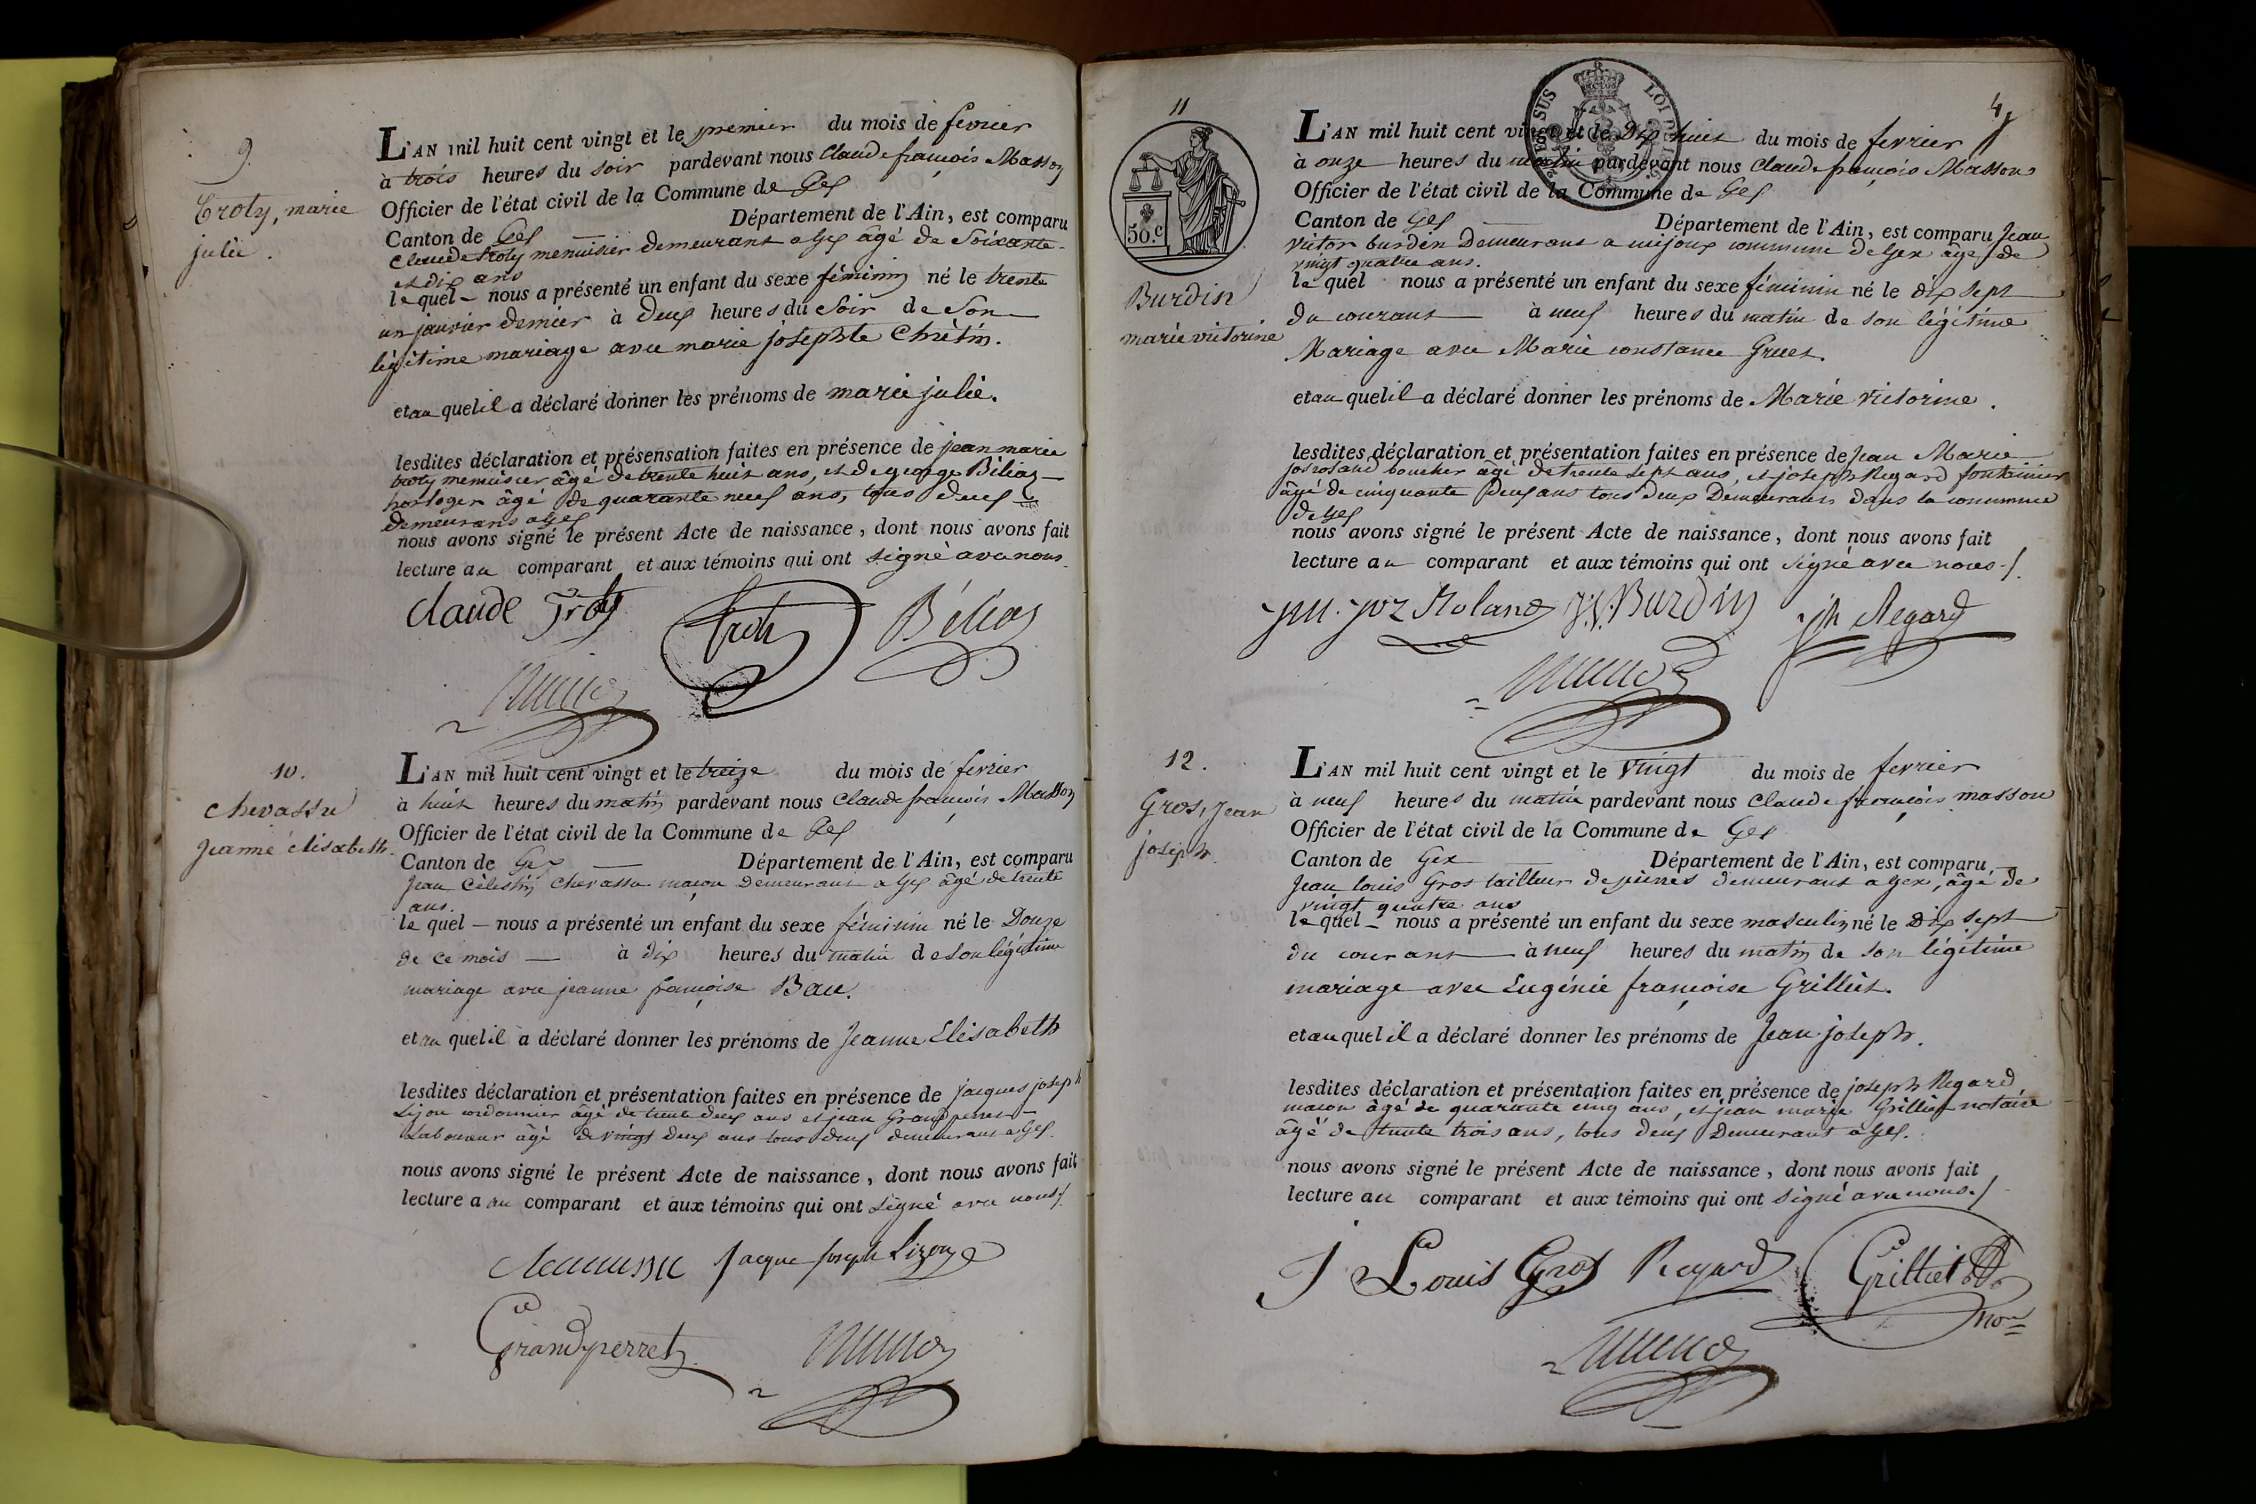 9.
Troty, marie
julie.
L'AN mil huit cent vingt et le premier du mois de fevrier
à trois heures du soir pardevant nous Claude françois Masson
Officier de l'état civil de la Commune de Gex
Canton de Gex Département de l'Ain, est comparu
Claude troty menuisier demeurant a Gex âgé de Soixante
et dix ans
le quel – nous a présenté un enfant du sexe féminin né le trente
un janvier dernier à deux heures du Soir de Son
légitime mariage avec marie josephte Chrétin.
et au quel il a déclaré donner les prénoms de marie julie.
lesdites déclaration et présensation faites en présence de jean marie
troty menuisier âgé de trente huit ans, et de george Béliaz
horloger âgé de quarante neuf ans, tous deux
demeurans a Gex
nous avons signé le présent Acte de naissance, dont nous avons fait
lecture au comparant et aux témoins qui ont signé avec nous.
Claude Troty troty Béliaz
10.
chevassu
Jeanne élisabeth.
L'AN mil huit cent vingt et le treize du mois de fevrier
à huit heures du matin pardevant nous Claude françois Masson
Officier de l'état civil de la Commune de Gex
Canton de Gex — Département de l'Ain, est comparu
Jean Célestin Chevassu maçon demeurant a Gex âgé de trente
ans.
le quel — nous a présenté un enfant du sexe féminin né le Douze
de ce mois — à dix heures du matin de son légitime
mariage avec jeanne françoise Bau.
et au quel il a déclaré donner les prénoms de Jeanne Elisabeth
lesdites déclaration et présentation faites en présence de jacques joseph
Lizon cordonnier âgé de trente deux ans et jean Grandperret
Laboureur âgé de vingt deux ans tous deux demeurant a Gex.
nous avons signé le présent Acte de naissance, dont nous avons fait
lecture a au comparant et aux témoins qui ont signé avec nous./.
Jacque Joseph Lizon
Grandperret
4
11
50.c
SUS LOI
Burdin
marie victorine
L'AN mil huit cent vingt et le Dix huit du mois de fevrier
à onze heures du matin pardevant nous Claude françois Masson
Officier de l'état civil de la Commune de Gex
Canton de Gex — Département de l'Ain, est comparu Jean
victor burdin Demeurant a mijoux commune de Gex âgé de
vingt quatre ans.
le quel nous a présenté un enfant du sexe féminin né le dix sept
du courant — à neuf heures du matin de son légitime
Mariage avec Marie constance Gruet.
et au quel il a déclaré donner les prénoms de Marie victorine.
lesdites déclaration et présentation faites en présence de Jean Marie
josroland boucher âgé de trente sept ans, et joseph Regard fontainier
âgé de cinquante deux ans tous deux Demeurans dans la commune
de Gex
nous avons signé le présent Acte de naissance, dont nous avons fait
lecture au comparant et aux témoins qui ont signé avec nous./.
J.M. Joz Roland J.V. Burdin jph Regard
12.
Gros, Jean
joseph.
L'AN mil huit cent vingt et le vingt du mois de fevrier
à neuf heures du matin pardevant nous Claude françois masson
Officier de l'état civil de la Commune de Gex
Canton de Gex Département de l'Ain, est comparu,
Jean louis Gros tailleur de pierres demeurant a Gex, âgé de
vingt quatre ans
le quel – nous a présenté un enfant du sexe masculin né le Dix sept
du courant — à neuf heures du matin de son légitime
mariage avec Eugénie françoise Grilliet.
et au quel il a déclaré donner les prénoms de Jean joseph.
lesdites déclaration et présentation faites en présence de joseph Regard,
maçon âgé de quarante cinq ans, et jean marie Grilliet notaire
âgé de trente trois ans, tous deux Demeurant à Gex.
nous avons signé le présent Acte de naissance, dont nous avons fait
lecture au comparant et aux témoins qui ont signé avec nous./.
J Louis Gros Regard Grilliet
nore